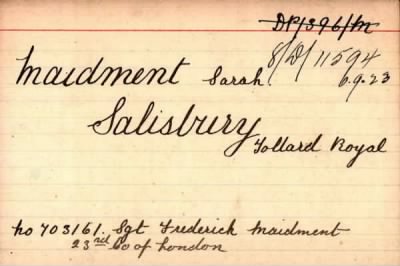 DP/396/M
8/D/11594
Maidment Sarah. 6.9.23
Salisbury
Tollard Royal
No 703161. Sgt Frederick Maidment
23rd Co of London